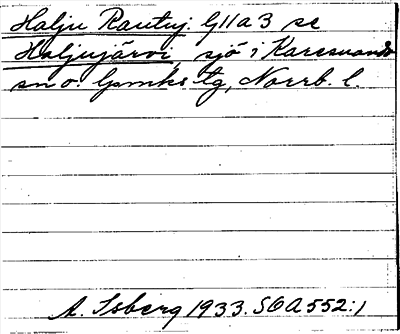 Halju Rautuj. G11a3 se
Haljujärvi, sjö i Karesuando
sn o. lpmks tg, Norrb. l.
A. Isberg 1933. SOA 552:1